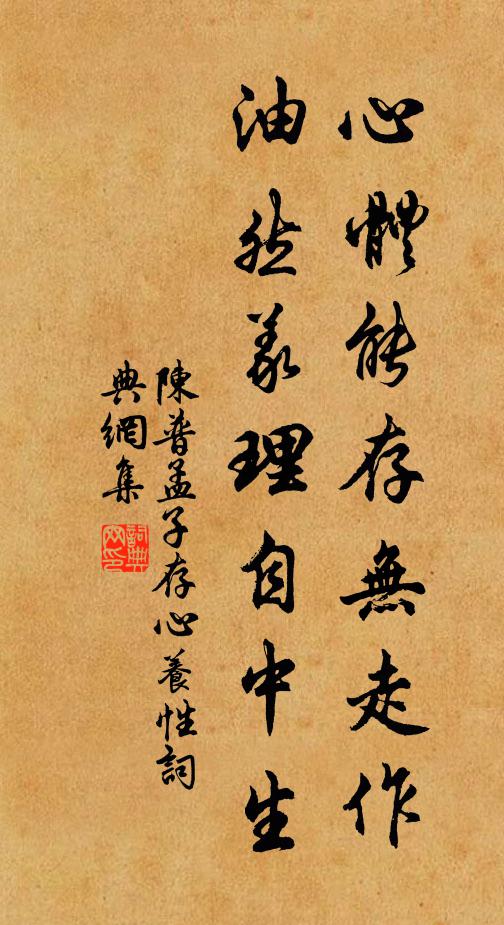 心體能存無走作
油然義理自中生
陳普孟子存心養性詞
典網集
詞典
网印